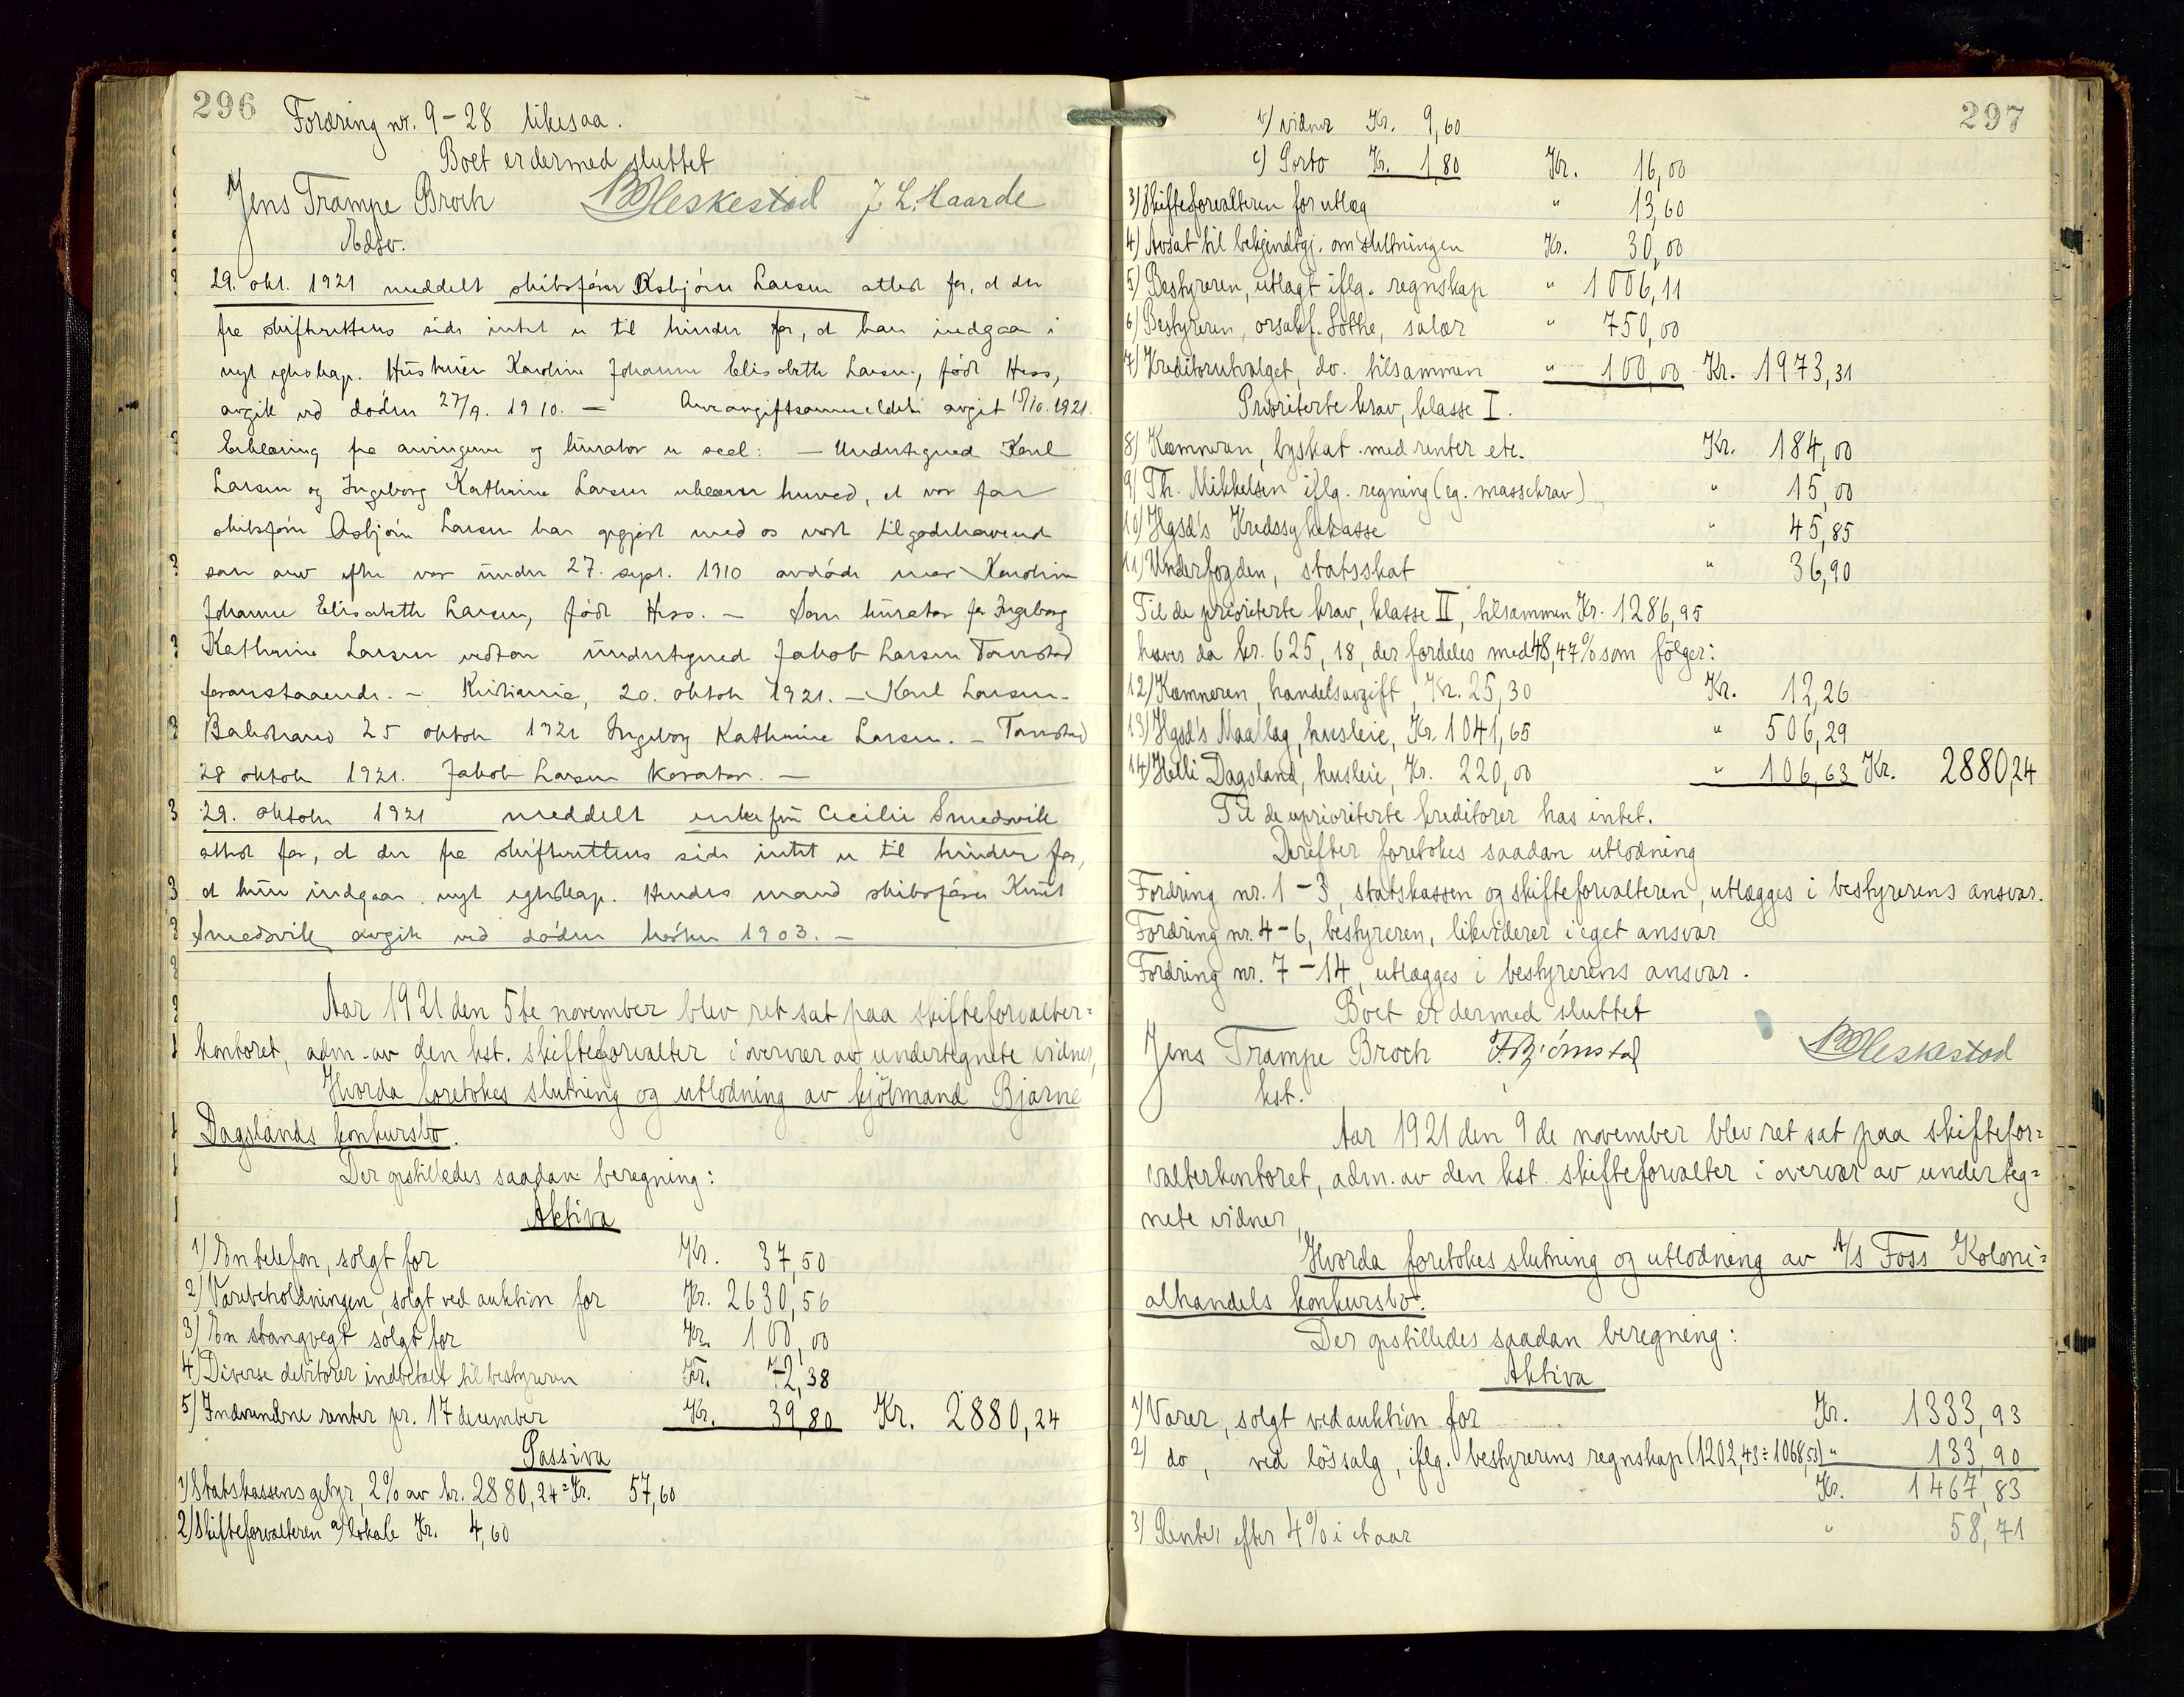 296
Fordring nr. 9-28 likesaa.
Boet er dermed sluttet
Jens Trampe Broch BHeskestad J. L. Haarde
Adsv.
29. okt. 1921 meddelt skibsfører Asbjørn Larsen attest for, at der
fra skifterettens side intet er til hinder for, at han indgaar i
nyt egteskap. Hustruen Karoline Johanne Elisabeth Larsen, født Hess,
avgik ved døden 27/9. 1910. — Arveavgiftsanmeldelse avgit 15/10. 1921.
Erklæring fra arvingerne og kurator er saal: — Undertegnede Karl
Larsen og Ingeborg Kathrine Larsen erklærer herved, at vor far
skibsfører Asbjørn Larsen har opgjort med os vort tilgodehavende
som arv efter vor under 27. sept. 1910 avdøde mor Karoline
Johanne Elisabeth Larsen, født Hess. — Som kurator for Ingeborg
Kathrine Larsen vedtar undertegnede Jakob Larsen Tanstad
foranstaaende. — Kristiania, 20. oktob 1921. — Karl Larsen. —
Balestrand 25 oktob 1921 Ingeborg Kathrine Larsen. — Tanstad
28 oktob 1921. Jakob Larsen Kurator. —
29. oktober 1921 meddelt enkefru Cecilie Smedsvik
attest for, at der fra skifterettens side intet er til hinder for,
at hun indgaar nyt egteskap. Hendes mand skibsfører Knut
Smedsvik avgik ved døden høsten 1903. —
Aar 1921 den 5te november blev ret sat paa skifteforvalter=
kontoret, adm. av den kst. skifteforvalter i overvær av undertegnete vidner,
Hvorda foretokes slutning og utlodning av kjøbmand Bjarne
Dagslands konkursbo.
Der opstilledes saadan beregning:
Aktiva
1) En telefon, solgt for Kr. 37,50
2) Varebeholdningen, solgt ved auktion for Kr. 2630,56
3) En stangvegt solgt for Kr. 100,00
4) Diverse debitorer indbetalt til bestyreren Kr. 72,38
5) Indvundne renter pr. 17 december Kr. 39,80 Kr. 2880,24
Passiva
1) Statskassens gebyr, 2% av kr. 2880,24 = Kr. 57,60
2) Skifteforvalteren a) lokale Kr. 4,60
297
b) vidner Kr. 9,60
c) Porto Kr. 1,80 Kr. 16,00
3) Skifteforvalteren for utlæg " 13,60
4) Avsat til bekjendtgj. om slutningen Kr. 30,00
5) Bestyreren, utlagt iflg. regnskap " 1006,11
6) Bestyreren, orsakf. Lothe, salær " 750,00
7) Kreditorutvalget, do. tilsammen " 100,00 Kr. 1973,31
Prioriterte krav, klasse I.
8) Kæmneren, byskat med renter etc. Kr. 184,00
9) Th. Mikkelsen iflg. regning (eg. massekrav) " 15,00
10) Hgsd's Kredssykekasse " 45,85
11) Underfogden, statsskat " 36,90
Til de prioriterte krav, klasse II, tilsammen Kr. 1286,95
haves da kr. 625,18, der fordeles med 48,47% som følger:
12) Kæmneren, handelsavgift, Kr. 25,30 Kr. 12,26
13) Hgsd's Maallag, husleie, Kr. 1041,65 " 506,29
14) Helli Dagsland, husleie, Kr. 220,00 " 106,63 Kr. 2880,24
Til de uprioriterte kreditorer has intet.
Derefter foretokes saadan utlodning
Fordring nr. 1-3, statskassen og skifteforvalteren, utlægges i bestyrerens ansvar.
Fordring nr. 4-6, bestyreren, likviderer i eget ansvar
Fordring nr. 7-14, utlægges i bestyrerens ansvar.
Boet er dermed sluttet
Jens Trampe Broch F. Bjørnstad BHeskestad
kst.
Aar 1921 den 9de november blev ret sat paa skiftefor=
valterkontoret, adm. av den kst. skifteforvalter i overvær av underteg=
nete vidner,
Hvorda foretokes slutning og utlodning av A/S Foss Koloni=
alhandels konkursbo.
Der opstilledes saadan beregning:
Aktiva
1) Varer, solgt ved auktion for Kr. 1333,93
2) do, ved løssalg, iflg. bestyrerens regnskap (1202,43 ÷ 1068,53) " 133,90
Kr. 1467,83
3) Renter efter 4% i et aar " 58,71